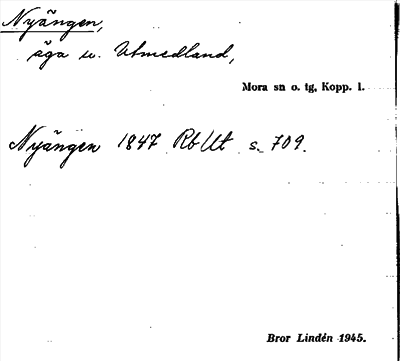 Nyängen,
äga u. Utmedland,
Mora sn o. tg, Kopp. l.
Nyängen 1847 Rb Ut s. 709.
Bror Lindén 1945.